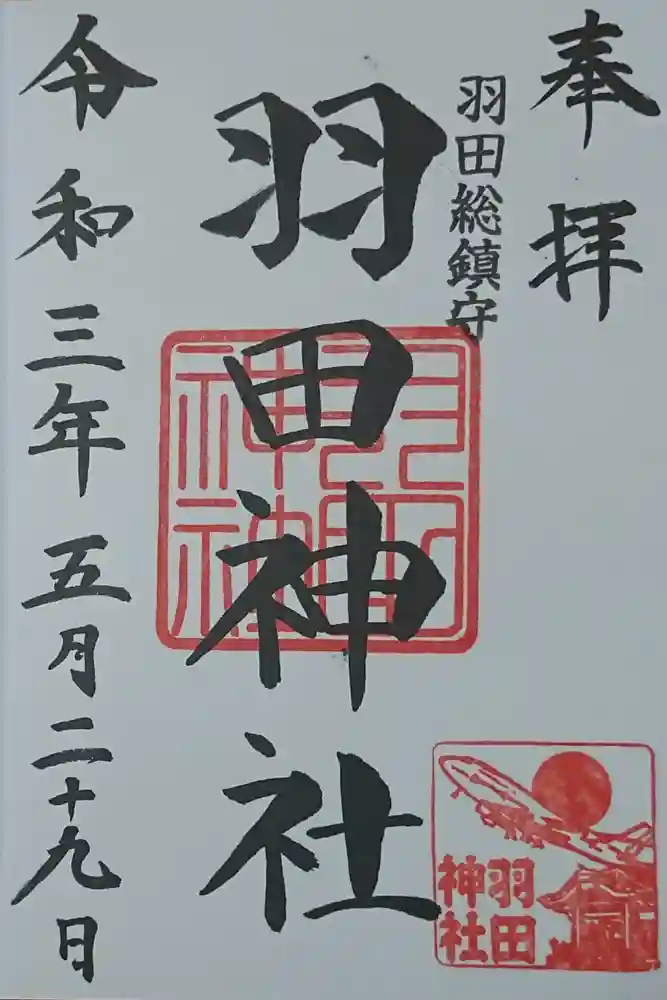 奉拝
羽田総鎮守
羽田神社
令和三年五月二十九日
羽田
神社
羽田
神社